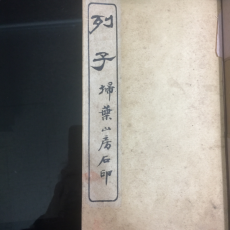 列子
掃葉山房石印